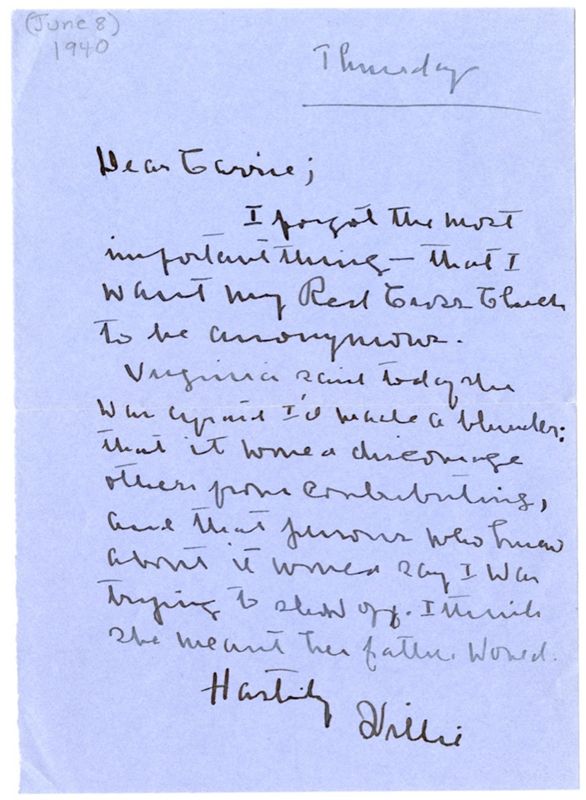 (June 8)
1940
Thursday
Dear Carrie;
I forgot the most
important thing — that I
want my Red Cross Check
to be anonymous.
Virginia said today she
was afraid I'd made a blunder:
that it would discourage
others from contributing,
and that persons who knew
about it would say I was
trying to show off. I think
she meant her father would.
Hastily
Willie